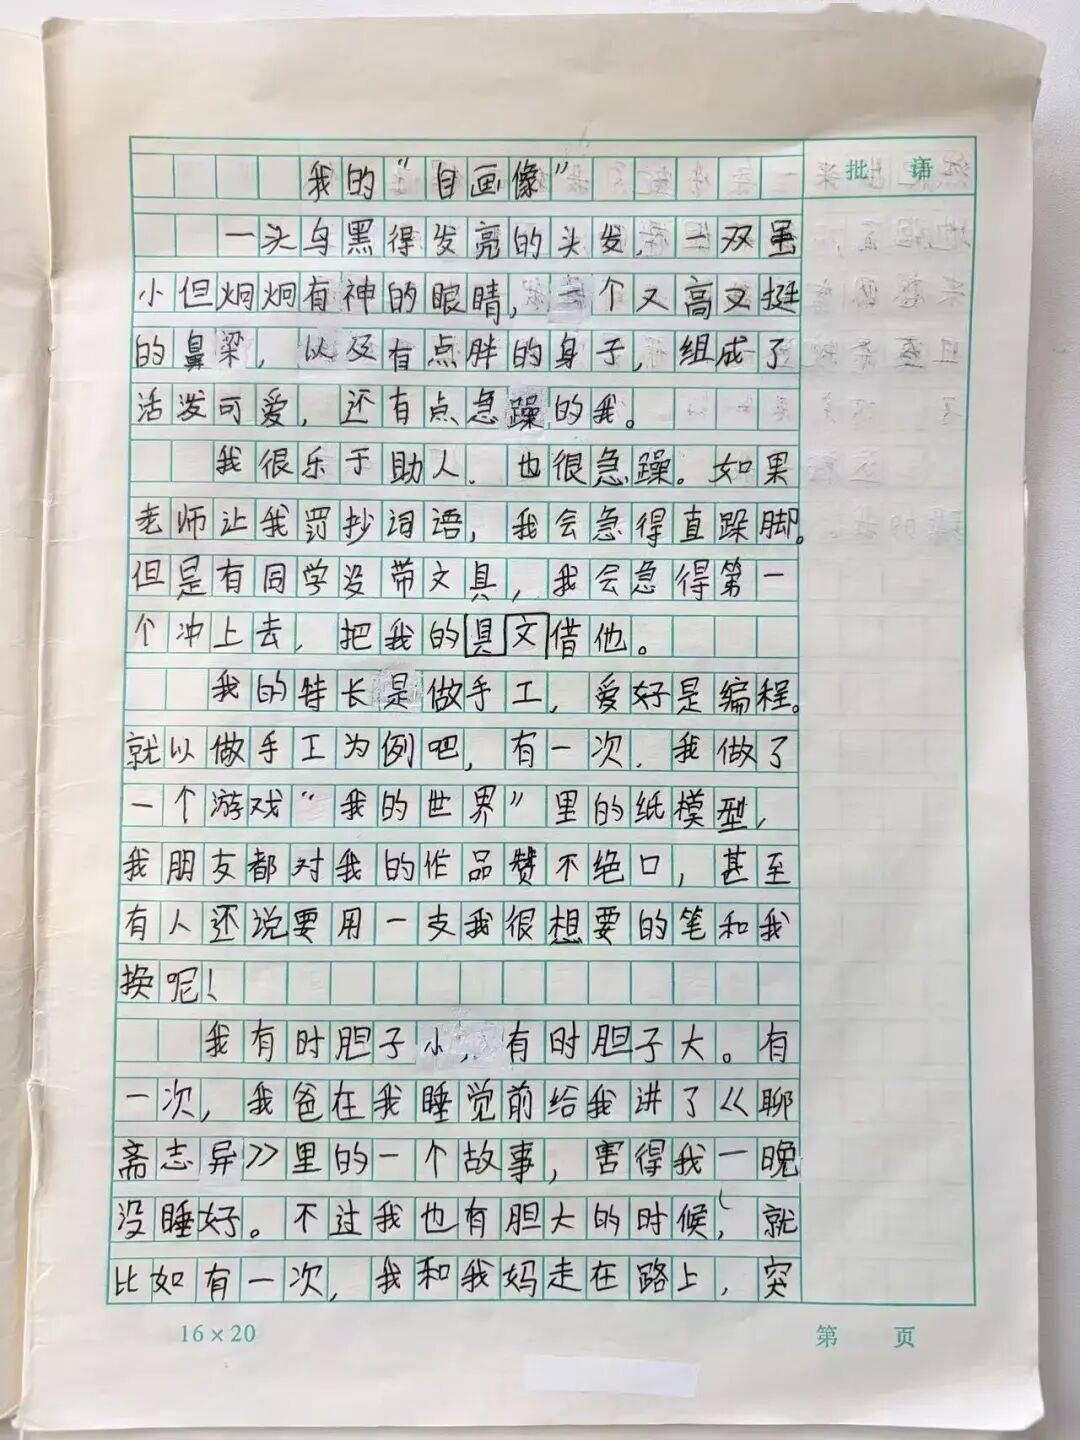 我的“自画像”
批 语
一头乌黑得发亮的头发，一双虽
小但炯炯有神的眼睛，一个又高又挺
的鼻梁，以及有点胖的身子，组成了
活泼可爱，还有点急躁的我。
我很乐于助人．也很急躁。如果
老师让我罚抄词语，我会急得直跺脚。
但是有同学没带文具，我会急得第一
个冲上去，把我的具文借他。
我的特长是做手工，爱好是编程。
就以做手工为例吧，有一次．我做了
一个游戏“我的世界”里的纸模型，
我朋友都对我的作品赞不绝口，甚至
有人还说要用一支我很想要的笔和我
换呢！
我有时胆子小，有时胆子大。有
一次，我爸在我睡觉前给我讲了《聊
斋志异》里的一个故事，害得我一晚
没睡好。不过我也有胆大的时候，就
比如有一次，我和我妈走在路上，突
16×20
第 页